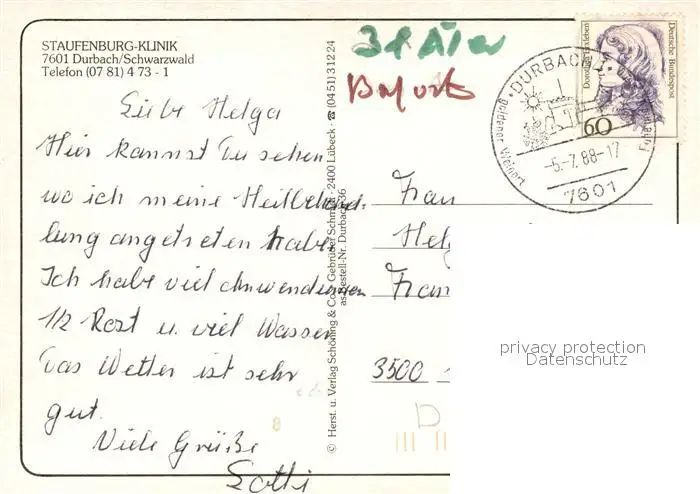 STAUFENBURG-KLINIK
7601 Durbach/Schwarzwald
Telefon (07 81) 4 73 - 1
Liebe Helga
Hier kannst Du sehen
wo ich meine Heilbehand-
lung angetreten habe
Ich habe viel Anwendungen
1/2 Kost u. viel Wasser
Das Wetter ist sehr
gut.
Viele Grüße
Lotti
© Herst. u. Verlag Schöning & Co + Gebrüder Schmidt · 2400 Lübeck · ☎ (04 51) 3 12 24
Bestell-Nr. Durbach 36
DURBACH
goldener Weinort
-5.-7.88-17
7601
Dorothea Erxleben
Deutsche Bundespost
60
Frau
Hel
Fran
3500
D
8
privacy protection
Datenschutz